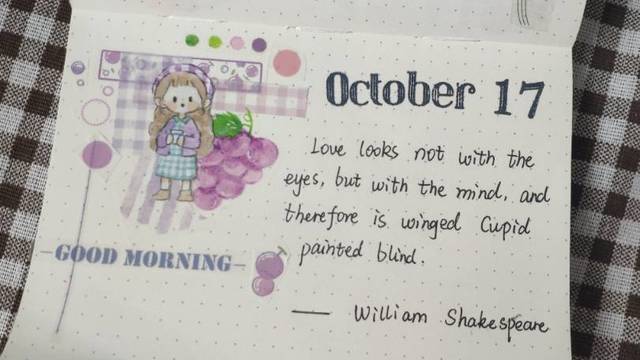 October 17
Love looks not with the
eyes, but with the mind, and
therefore is winged Cupid
painted blind.
— William Shakespeare
—GOOD MORNING—